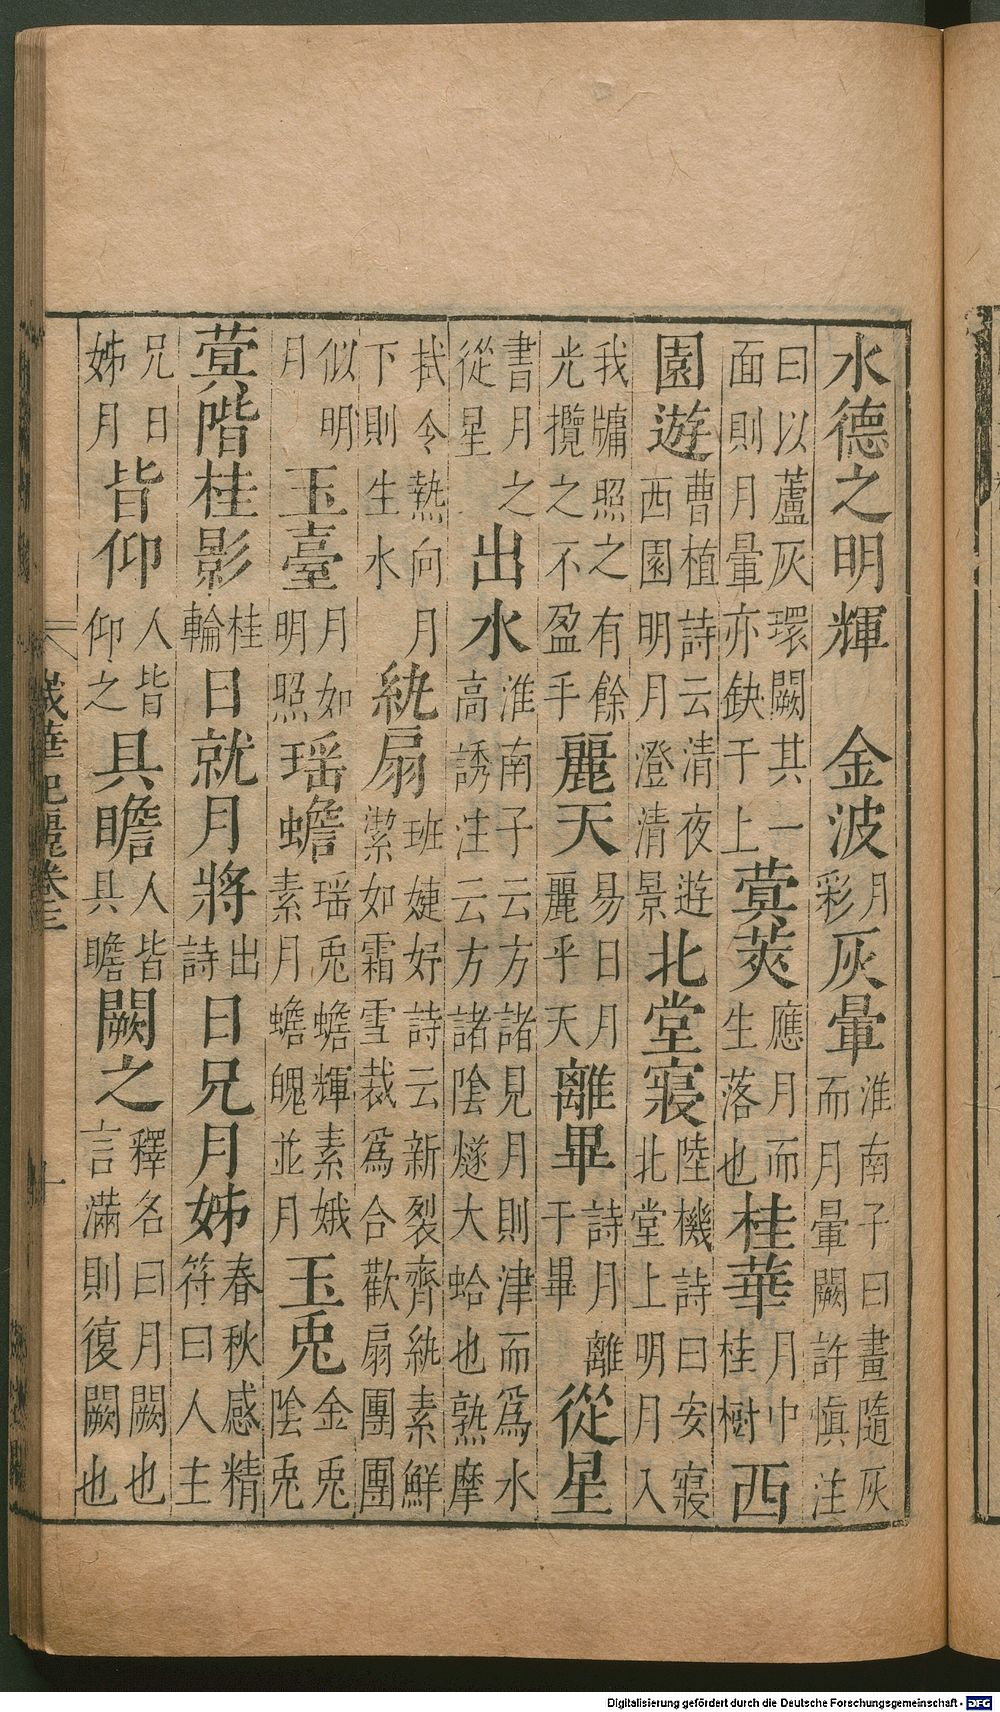 水德之明輝　金波月彩灰暈淮南子曰畫隨灰而月暈闕許慎注
曰以蘆灰環闕其一面則月暈亦缺于上蓂莢應月而生落也桂華月中桂樹西
園遊曹植詩云清夜遊西園明月澄清景北堂寢陸機詩曰安寢北堂上明月入
我牖照之有餘光攬之不盈手麗天易日月麗乎天離畢詩月離于畢從星
書月之從星出水淮南子云方諸見月則津而爲水高誘注云方諸陰燧大蛤也熟摩
拭令熱向月下則生水紈扇班婕妤詩云新裂齊紈素鮮潔如霜雪裁爲合歡扇團團
似明月玉臺月如明照瑶蟾瑶兎蟾輝素娥素月蟾魄並月玉兎金兎陰兎
蓂階桂影桂輪日就月將出詩日兄月姊春秋感精符曰人主
兄日姊月皆仰人皆仰之具瞻人皆具瞻闕之釋名曰月闕也言滿則復闕也
歲華紀麗卷三
Digitalisierung gefördert durch die Deutsche Forschungsgemeinschaft - DFG